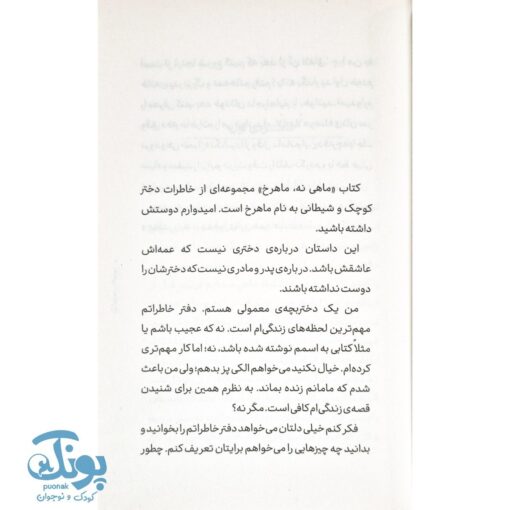 کتاب «ماهی نه، ماهرخ» مجموعه‌ای از خاطرات دختر
کوچک و شیطانی به نام ماهرخ است. امیدوارم دوستش
داشته باشید.
این داستان درباره‌ی دختری نیست که عمه‌اش
عاشقش باشد. درباره‌ی پدر و مادری نیست که دخترشان را
دوست نداشته باشند.
من یک دختربچه‌ی معمولی هستم. دفتر خاطراتم
مهم‌ترین لحظه‌های زندگی‌ام است. نه که عجیب باشم یا
مثلاً کتابی به اسمم نوشته شده باشد، نه؛ اما کار مهم‌تری
کرده‌ام. خیال نکنید می‌خواهم الکی پز بدهم؛ ولی من باعث
شدم که مامانم زنده بماند. به نظرم همین برای شنیدن
قصه‌ی زندگی‌ام کافی است. مگر نه؟
فکر کنم خیلی دلتان می‌خواهد دفتر خاطراتم را بخوانید و
بدانید چه چیزهایی را می‌خواهم برایتان تعریف کنم. چطور
پونک
puonak
کودک و نوجوان